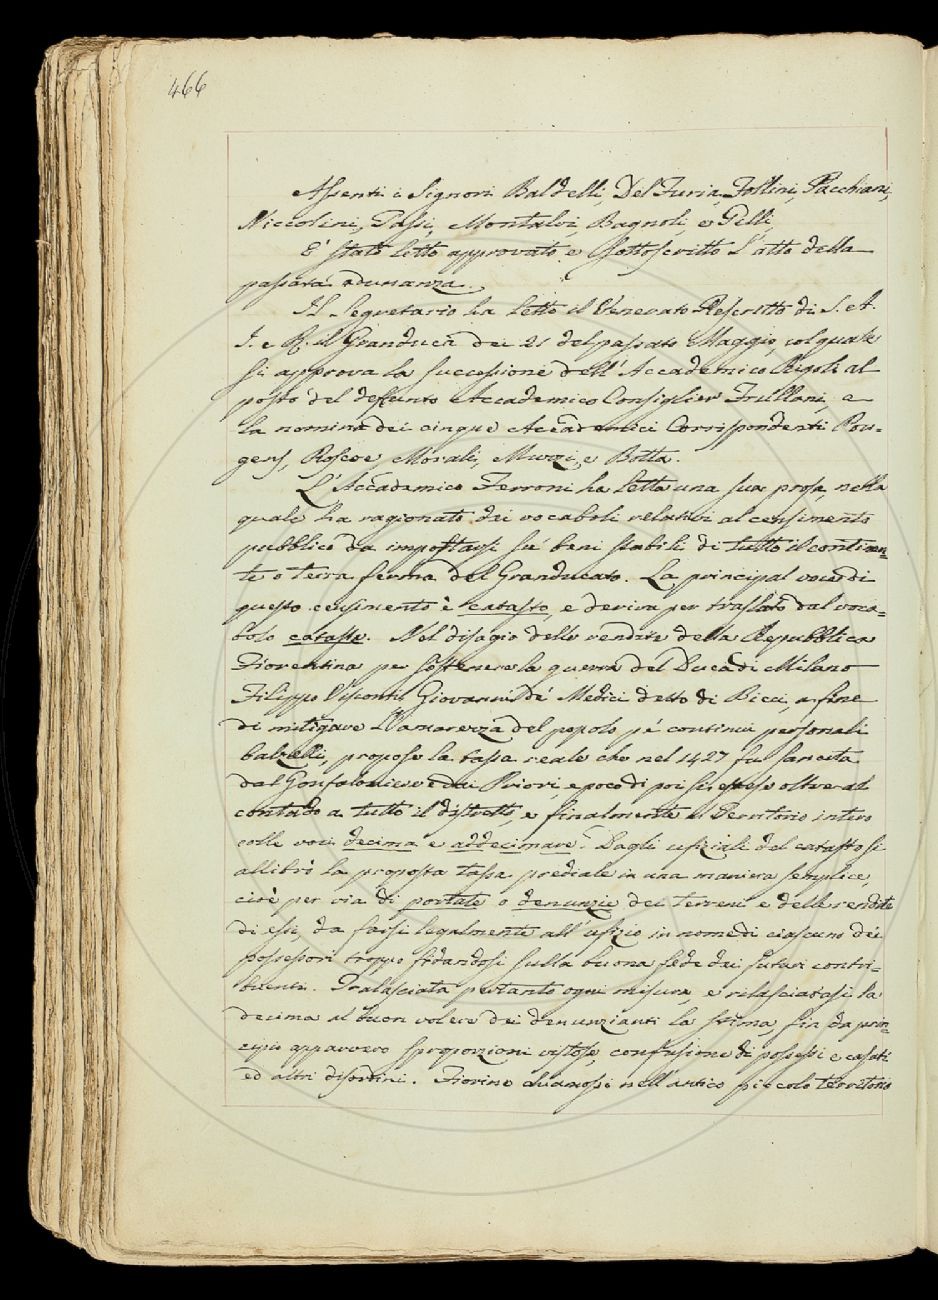 466
Assenti i Signori Baldelli, Del Furia, Follini, Pacchiani,
Niccolini, Tassi, Montalvi, Bagnoli, e Gelli.
E' stato letto approvato e sottoscritto l'atto della
passata adunanza.
Il Segretario ha letto il Venerato Rescritto di S. A.
I. e R. il Granduca dei 21 del passato Maggio, col quale
si approva la successione dell'Accademico Rigoli al
posto del defunto Accademico Consiglier Frullani, e
la nomina dei cinque Accademici Corrispondenti Pou-
gens, Roscoe, Morali, Muzzi, e Botta.
L'Accademico Ferroni ha letta una sua prosa, nella
quale ha ragionato dei vocaboli relativi al censimento
pubblico da impostarsi su' beni stabili di tutto il continen=
te o terra ferma del Granducato. La principal voce di
questo censimento è catasto, e deriva per traslato dal voca=
bolo cataste. Nel disagio delle rendite della Repubblica
Fiorentina per sostenere la guerra del Duca di Milano
Filippo Visconti Giovanni de' Medici detto di Bicci, a fine
di mitigare l'amarezza del popolo pe' continui personali
balzelli, propose la tassa reale che nel 1427 fu sancita
dal Gonfaloniere e dai Priori, e poco di poi si estese oltre al
contado a tutto il distretto, e finalmente al Territorio intero
colle voci decima e addecimare. Dagli ufiziali del catasto si
allibrò la proposta tassa prediale in una maniera semplice,
cioè per via di portate o denunzie dei terreni e delle rendite
di essi, da farsi legalmente all'ufizio in nome di ciascuno dei
possessori troppo fidandosi sulla buona fede dei futuri contri=
buenti. Tralasciata pertanto ogni misura, e rilasciatasi la
decima al buon volere dei denunzianti la stima, sin da prin=
cipio apparvero sproporzioni vistose, confusione di possessi e casati
ed altri disordini. Fiorino avanossi nell'antico piccolo territorio